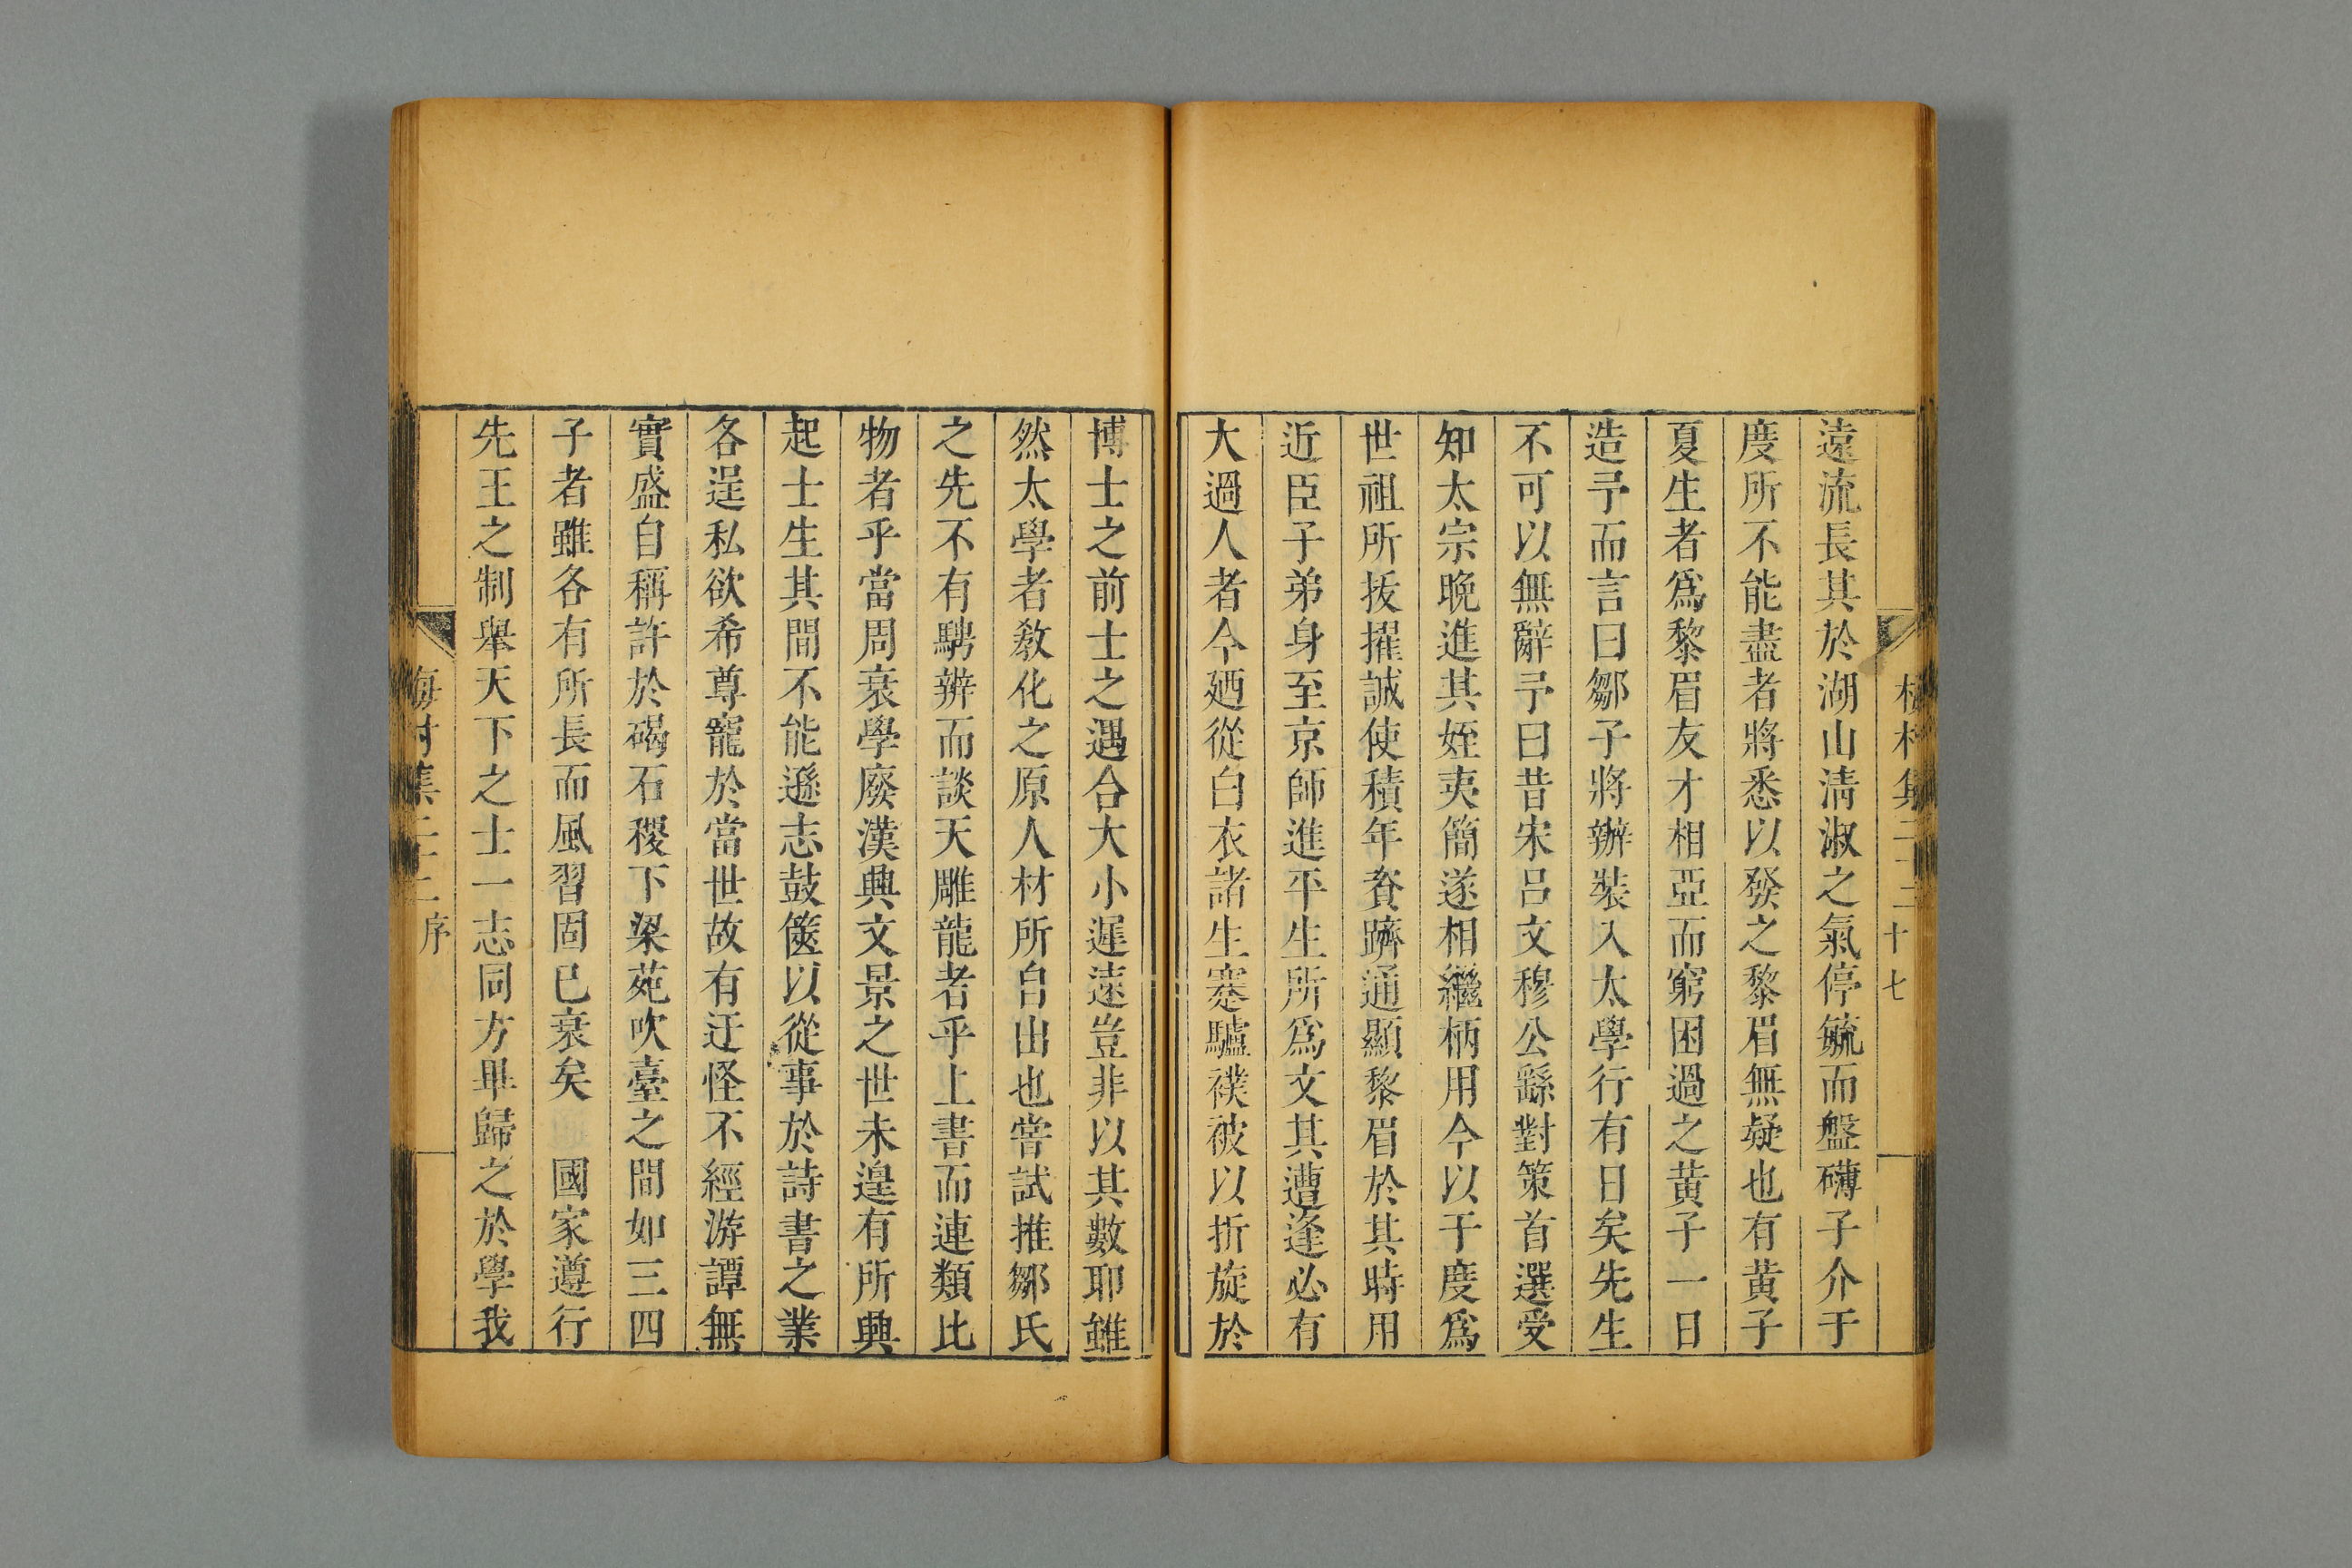 遠流長其於湖山淸淑之氣停毓而盤礴子介于
度所不能盡者將悉以發之黎眉無疑也有黄子
夏生者爲黎眉友才相亞而窮困過之黄子一日
造予而言曰鄒子將辦裝入太學行有日矣先生
不可以無辭予曰昔宋呂文穆公繇對策首選受
知太宗晩進其姪夷簡遂相繼柄用今以于度爲
世祖所拔擢誠使積年資躋通顯黎眉於其時用
近臣子弟身至京師進平生所爲文其遭逢必有
大過人者今廼從白衣諸生蹇驢襆被以折旋於
十七
博士之前士之遇合大小遲速豈非以其數耶雖
然太學者敎化之原人材所自出也嘗試推鄒氏
之先不有騁辨而談天雕龍者乎上書而連類比
物者乎當周衰學廢漢興文景之世未遑有所興
起士生其間不能遜志鼓篋以從事於詩書之業
各逞私欲希尊寵於當世故有迂怪不經游譚無
實盛自稱許於碣石稷下梁苑吹臺之間如三四
子者雖各有所長而風習固已衰矣 國家遵行
先王之制舉天下之士一志同方畢歸之於學我
村集 序